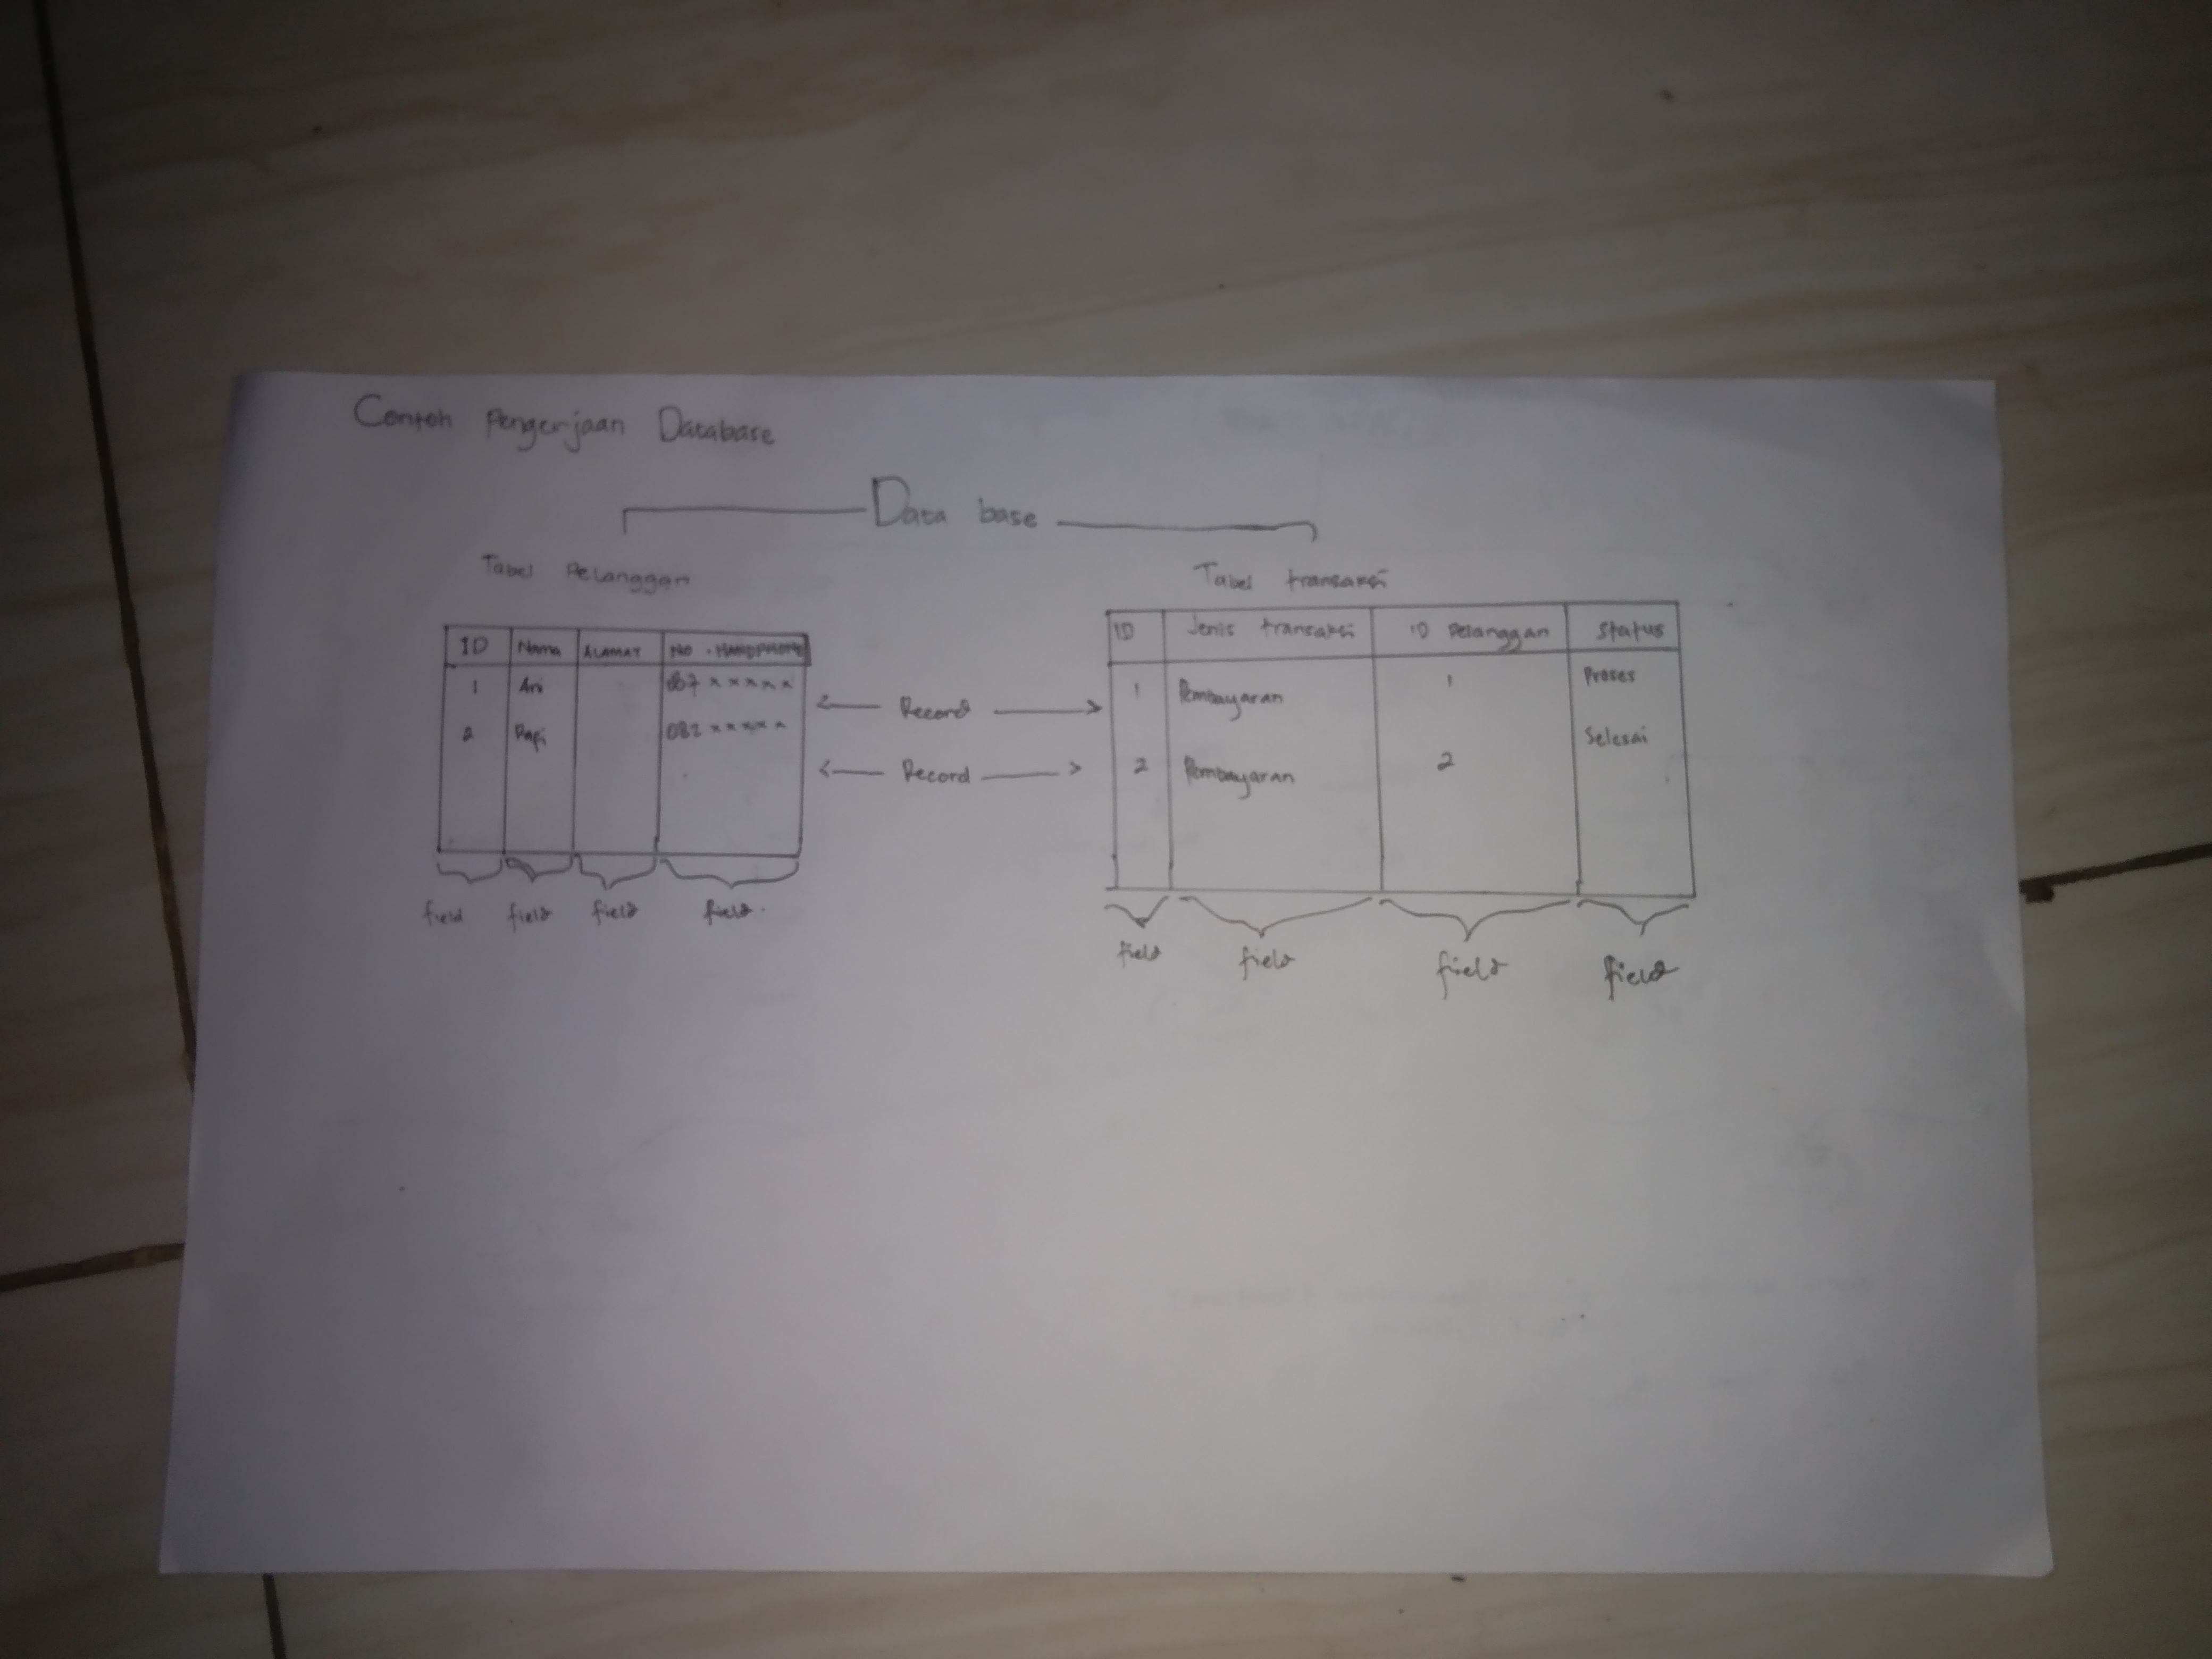 Contoh Pengerjaan Database
Data base
Tabel Pelanggan
ID Nama ALAMAT NO. HANDPHONE
1 Ari 087 xxxxx
2 Rafi 082 xxxxx
field field field field
Record
Record
Tabel transaksi
ID Jenis transaksi ID Pelanggan Status
1 Pembayaran 1 Proses
2 Pembayaran 2 Selesai
field field field field